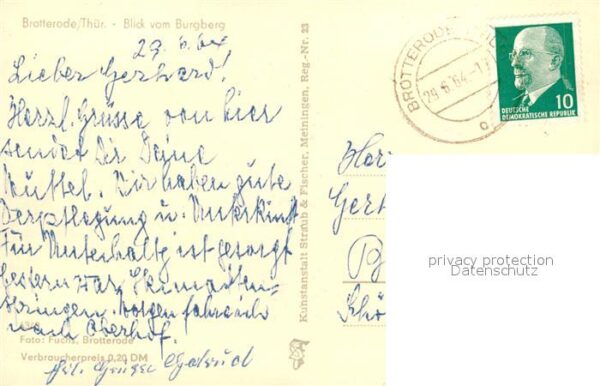 Brotterode/Thür. - Blick vom Burgberg
29.6.64
Lieber Gerhard!
Herzl. Grüsse von hier
sendet Dir Deine
Muttel. Wir haben gute
Verpflegung u. Unterkunft
Für Unterhaltg ist gesorgt
gestern war Heimatten-
springen. Morgen fahre ich
nach Oberhof.
Foto: Fuchs, Brotterode
Verbraucherpreis 0,20 DM
Kunstanstalt Straub & Fischer, Meiningen, Reg.-Nr. 23
BROTTERODE
29.6.64
10
DEUTSCHE
DEMOKRATISCHE REPUBLIK
privacy protection
Datenschutz